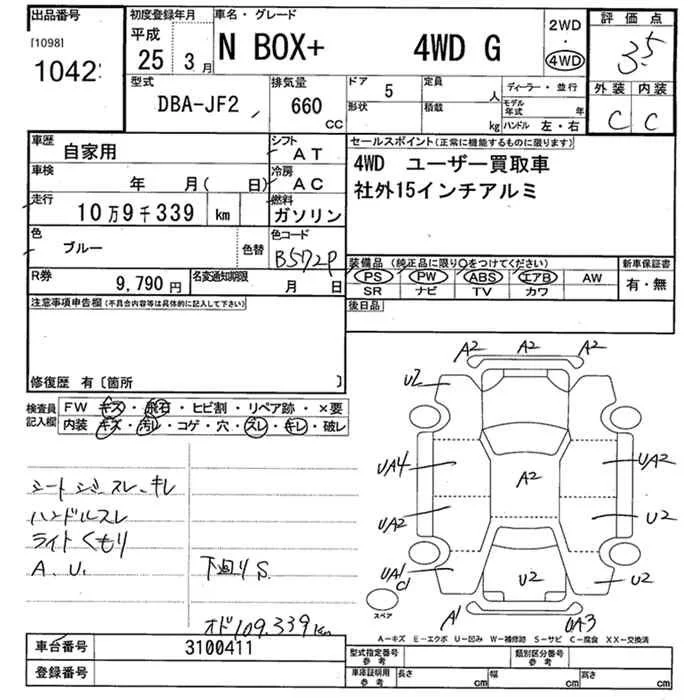 出品番号
[1098]
1042
初度登録年月
平成
25 3月
車名・グレード
N BOX+ 4WD G
2WD
・
4WD
評価点
3.5
外装 内装
C C
型式
DBA-JF2
排気量
660
CC
ドア
5
形状
定員
人
積載
kg
ディーラー・並行
モデル年式 年
ハンドル 左・右
車歴
自家用
シフト
AT
車検
年 月( 日)
冷房
AC
走行
10万9千339 km
燃料
ガソリン
色
ブルー
色替
色コード
B572P
R券
9,790円
名変通知期限
月 日
セールスポイント(正常に機能するものに限ります)
4WD ユーザー買取車
社外15インチアルミ
装備品 (純正品に限り○をつけてください)
PS PW ABS エアB AW
SR ナビ TV カワ
新車保証書
有・無
後日品
注意事項申告欄(不具合内容等は具体的に記入して下さい)
修復歴 有〔箇所 〕
検査員記入欄
FW キズ・飛石・ヒビ割・リペア跡・×要
内装 キズ・汚レ・コゲ・穴・スレ・キレ・破レ
スレ・キレ
ハンドルスレ
ライトくもり
A.U.
下回りS.
オド109.339km
A2 A2 A2
U2
UA4 A2 UA2
UA2 U2
UA1 U2 U2
A1 UA3
スペア
A-キズ E-エクボ U-凹み W-補修跡 S-サビ C-腐食 XX-交換済
車台番号 3100411
登録番号
型式指定番号
参考
類別区分番号
参考
車庫証明用
参考
長さ cm 幅 cm 高さ cm